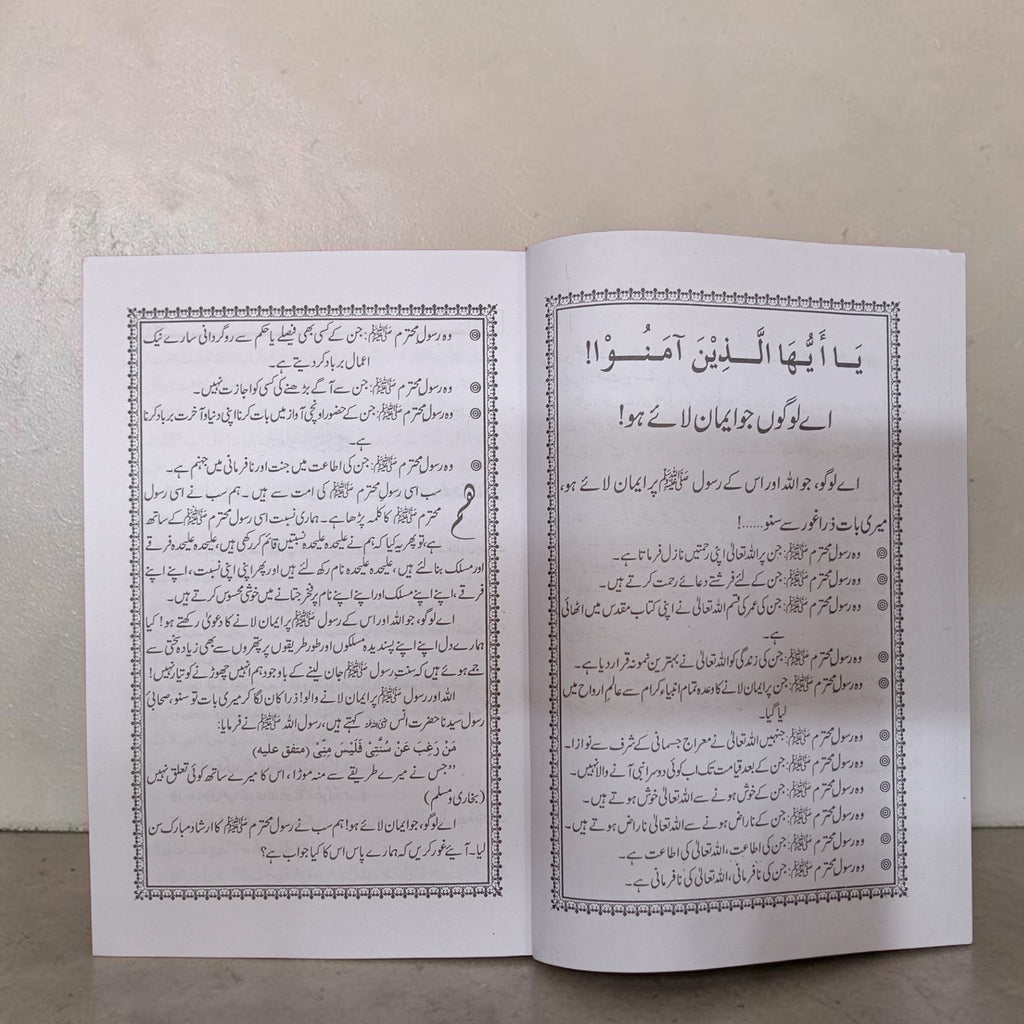 یَا أَیُّهَا الَّذِیْنَ آمَنُوْا!
اے لوگوں جو ایمان لائے ہو!
اے لوگو، جو اللہ اور اس کے رسول ﷺ پر ایمان لائے ہو،
میری بات ذرا غور سے سنو......!
◎ وہ رسول محترم ﷺ: جن پر اللہ تعالیٰ اپنی رحمتیں نازل فرماتا ہے۔
◎ وہ رسول محترم ﷺ: جن کے لئے فرشتے دعائے رحمت کرتے ہیں۔
◎ وہ رسول محترم ﷺ: جن کی عمر کی قسم اللہ تعالیٰ نے اپنی کتاب مقدس میں اٹھائی
ہے۔
◎ وہ رسول محترم ﷺ: جن کی زندگی کو اللہ تعالیٰ نے بہترین نمونہ قرار دیا ہے۔
◎ وہ رسول محترم ﷺ: جن پر ایمان لانے کا وعدہ تمام انبیاء کرام سے عالم ارواح میں
لیا گیا۔
◎ وہ رسول محترم ﷺ: جنہیں اللہ تعالیٰ نے معراج جسمانی کے شرف سے نوازا۔
◎ وہ رسول محترم ﷺ: جن کے بعد قیامت تک اب کوئی دوسرا نبی آنے والا نہیں۔
◎ وہ رسول محترم ﷺ: جن کے خوش ہونے سے اللہ تعالیٰ خوش ہوتے ہیں۔
◎ وہ رسول محترم ﷺ: جن کے ناراض ہونے سے اللہ تعالیٰ ناراض ہوتے ہیں۔
◎ وہ رسول محترم ﷺ: جن کی اطاعت، اللہ تعالیٰ کی اطاعت ہے۔
◎ وہ رسول محترم ﷺ: جن کی نافرمانی، اللہ تعالیٰ کی نافرمانی ہے۔
◎ وہ رسول محترم ﷺ: جن کے کسی بھی فیصلے یا حکم سے روگردانی سارے نیک
اعمال برباد کر دیتے ہے۔
◎ وہ رسول محترم ﷺ: جن سے آگے بڑھنے کی کسی کو اجازت نہیں۔
◎ وہ رسول محترم ﷺ: جن کے حضور اونچی آواز میں بات کرنا اپنی دنیا و آخرت برباد کرنا
ہے۔
◎ وہ رسول محترم ﷺ: جن کی اطاعت میں جنت اور نافرمانی میں جہنم ہے۔
ہم سب اسی رسول محترم ﷺ کی امت سے ہیں۔ ہم سب نے اسی رسول
محترم ﷺ کا کلمہ پڑھا ہے۔ ہماری نسبت اسی رسول محترم ﷺ کے ساتھ
ہے، تو پھر یہ کیا کہ ہم نے علیحدہ علیحدہ نسبتیں قائم کر رکھی ہیں، علیحدہ علیحدہ فرقے
اور مسلک بنا لئے ہیں، علیحدہ علیحدہ نام رکھ لئے ہیں اور پھر اپنی اپنی نسبت، اپنے اپنے
فرقے، اپنے اپنے مسلک اور اپنے اپنے نام پر فخر جتانے میں خوشی محسوس کرتے ہیں۔
اے لوگو، جو اللہ اور اس کے رسول ﷺ پر ایمان لانے کا دعویٰ رکھتے ہو! کیا
ہمارے دل اپنے اپنے پسندیدہ مسلکوں اور طور طریقوں پر پتھروں سے بھی زیادہ سختی سے
جمے ہوئے ہیں کہ سنت رسول ﷺ جان لینے کے باوجود ہم انہیں چھوڑنے کو تیار نہیں!
اللہ اور رسول ﷺ پر ایمان لانے والو! ذرا کان لگا کر میری بات تو سنو، صحابیٔ
رسول سیدنا حضرت انس رضی اللہ عنہ کہتے ہیں، رسول اللہ ﷺ نے فرمایا:
مَنْ رَغِبَ عَنْ سُنَّتِیْ فَلَیْسَ مِنِّیْ (متفق علیہ)
”جس نے میرے طریقے سے منہ موڑا، اس کا میرے ساتھ کوئی تعلق نہیں
(بخاری و مسلم)
اے لوگو، جو ایمان لائے ہو! ہم سب نے رسول محترم ﷺ کا ارشاد مبارک سن
لیا۔ آیئے غور کریں کہ ہمارے پاس اس کا کیا جواب ہے؟